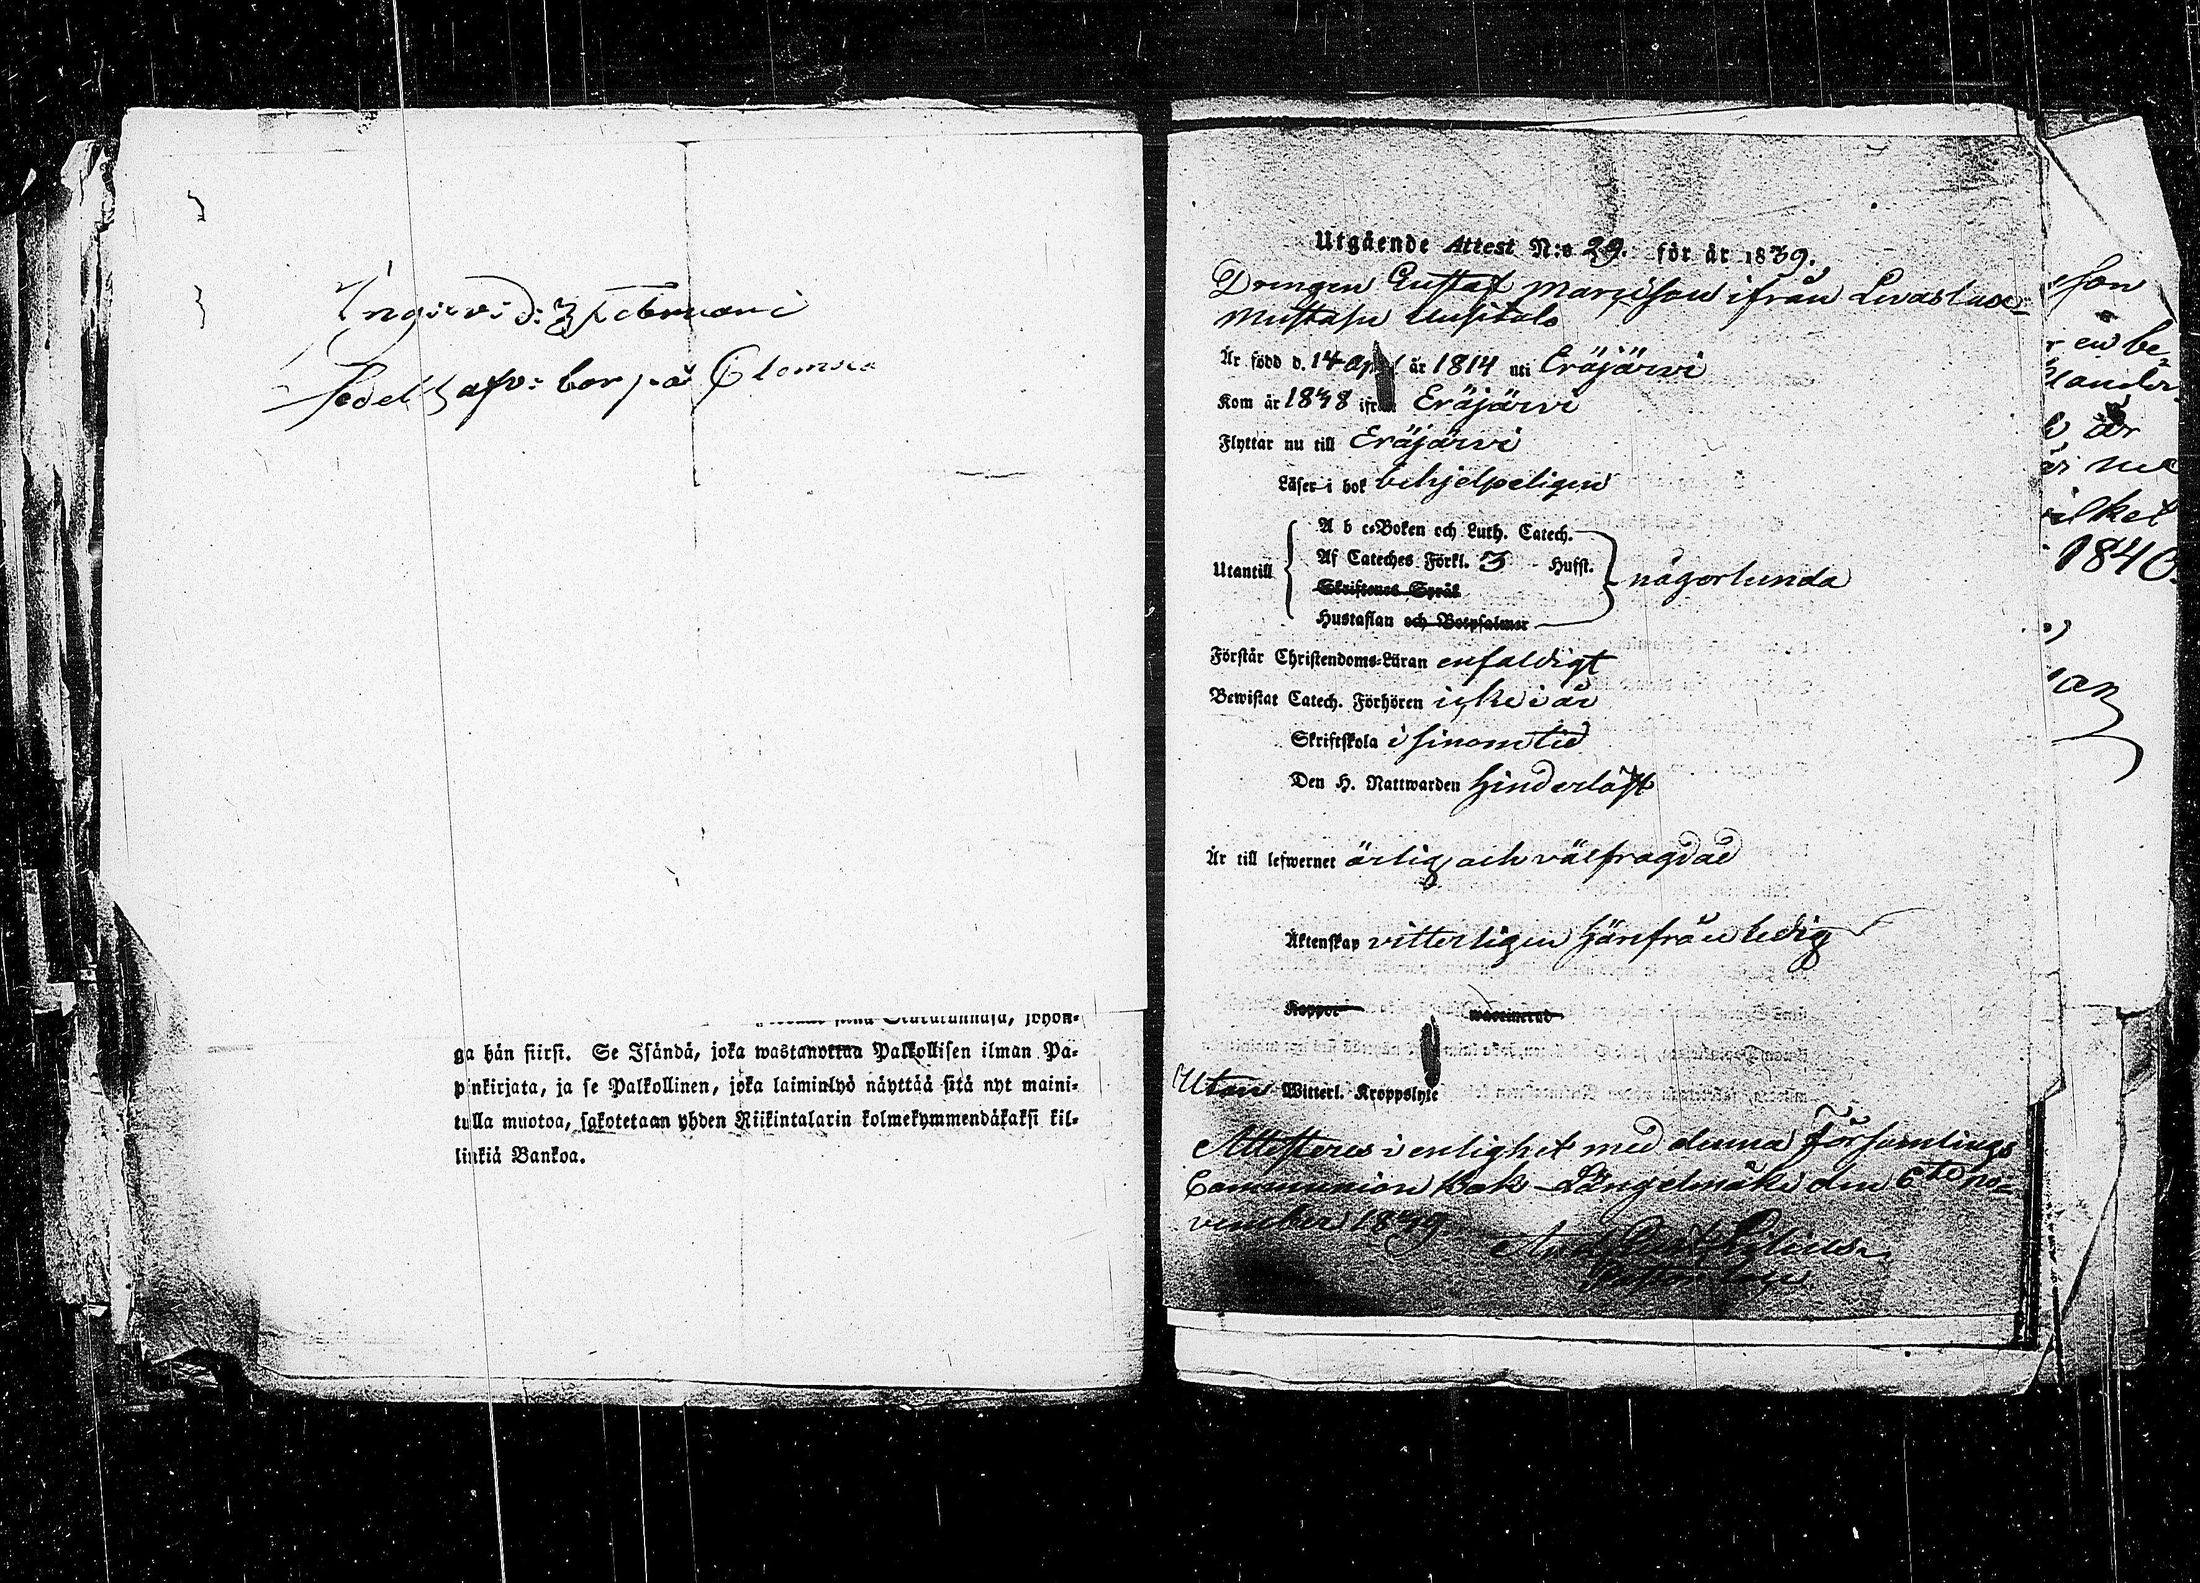 Ingievi d: 3 Februari
Sedel afv: bor på
ga hän siirsi. Se Isändä, joka wastanottaa Palkollisen ilman Pa-
pinkirjata, ja se Palkollinen, joka laiminlyö näyttää sitä nyt maini-
tulla muotoa, sakotetaan yhden Riikintalarin kolmekymmendäkaksi kil-
linkiä Bankoa.
Utgående Attest N:o 29. för år 1839.
Drengen Gustaf ifrån
Är född d. 14 April år 1814 uti Eräjärvi
Kom år 1838 ifrån Eräjärvi
Flyttar nu till Eräjärvi
Läser i bok behjelpeligen
A b c-Boken och Luth. Catech.
Utantill Af Cateches Förkl. 3 Hufst. någorlunda
Skriftenes Språk
Hustaflan och Botpsalmer
Förstår Christendoms-Läran enfaldigt
Bewistat Catech. Förhören icke i år
Skriftskola i sinom tid
Den H. Nattwarden hinderlöst
Är till lefwernet ärlig och välfrägdad
Äktenskap vitterligen härifrån ledig
Koppor waccinerad
Utan Witterl. Kroppslyte
Attesteres i enlighet med denna Församlings
Communion Bok Längelmäki den 6te no-
vember 1839
son
r en be-
är
ilket
1840.